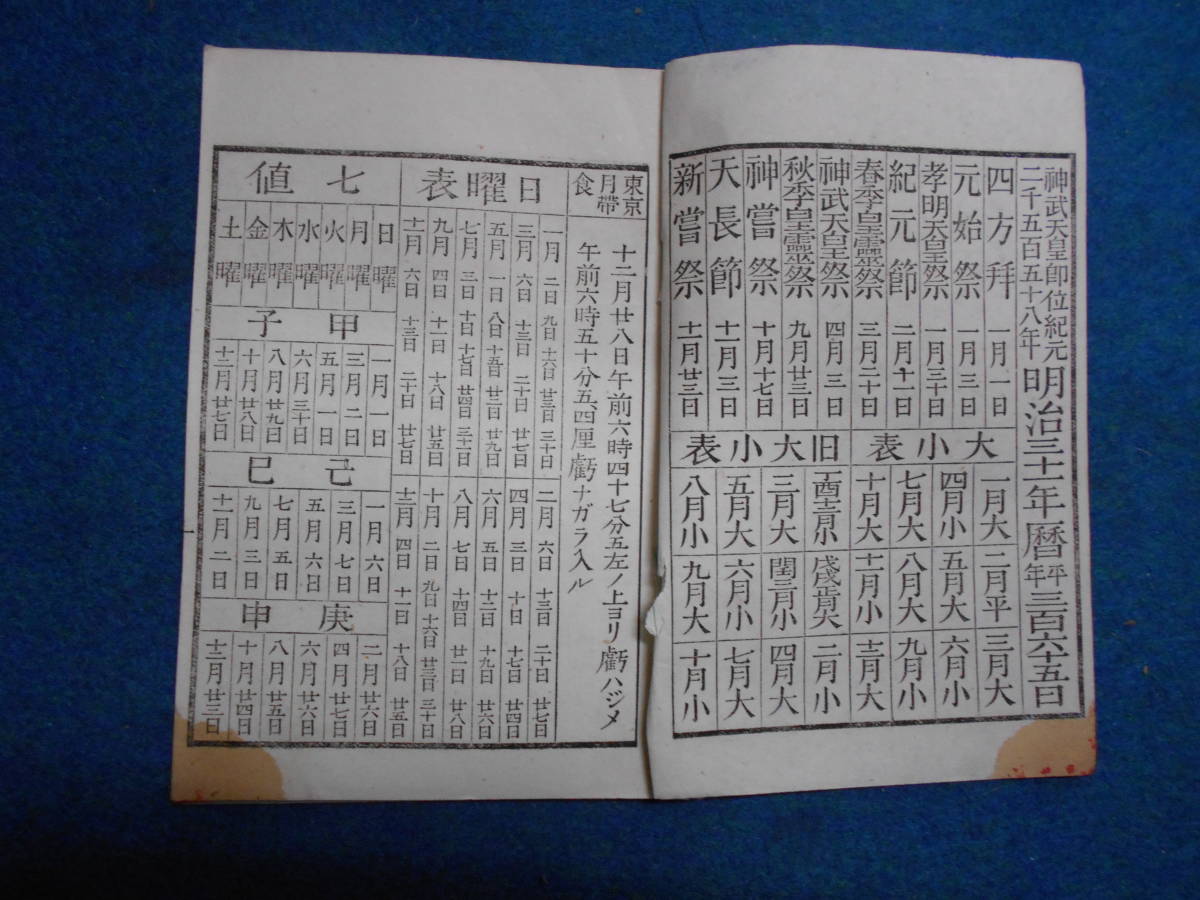 神武天皇即位紀元
二千五百五十八年
明治三十一年暦
平年
三百六十五日
四方拜 一月一日
元始祭 一月三日
孝明天皇祭 一月三十日
紀元節 二月十一日
春季皇霊祭 三月二十日
神武天皇祭 四月三日
秋季皇霊祭 九月廿三日
神嘗祭 十月十七日
天長節 十一月三日
新嘗祭 十一月廿三日
大小表
一月大 二月平 三月大
四月小 五月大 六月小
七月大 八月大 九月小
十月大 十一月小 十二月大
旧大小表
丁酉十二月小 戊戌正月大 二月小
三月大 閏三月小 四月大
五月大 六月小 七月大
八月小 九月大 十月小
東京
月帶
食
十二月廿八日午前六時四十七分五左ノ上ヨリ虧ハジメ
午前六時五十分五、四厘虧ナガラ入ル
日曜表
一月 二日 九日 十六日 廿三日 三十日
二月 六日 十三日 二十日 廿七日
三月 六日 十三日 二十日 廿七日
四月 三日 十日 十七日 廿四日
五月 一日 八日 十五日 廿二日 廿九日
六月 五日 十二日 十九日 廿六日
七月 三日 十日 十七日 廿四日 三十一日
八月 七日 十四日 廿一日 廿八日
九月 四日 十一日 十八日 廿五日
十月 二日 九日 十六日 廿三日 三十日
十一月 六日 十三日 二十日 廿七日
十二月 四日 十一日 十八日 廿五日
七値
日曜
月曜
火曜
水曜
木曜
金曜
土曜
甲子
一月一日
三月二日
五月一日
六月三十日
八月廿九日
十月廿八日
十二月廿七日
己巳
一月六日
三月七日
五月六日
七月五日
九月三日
十一月二日
庚申
二月廿六日
四月廿七日
六月廿六日
八月廿五日
十月廿四日
十二月廿三日
一